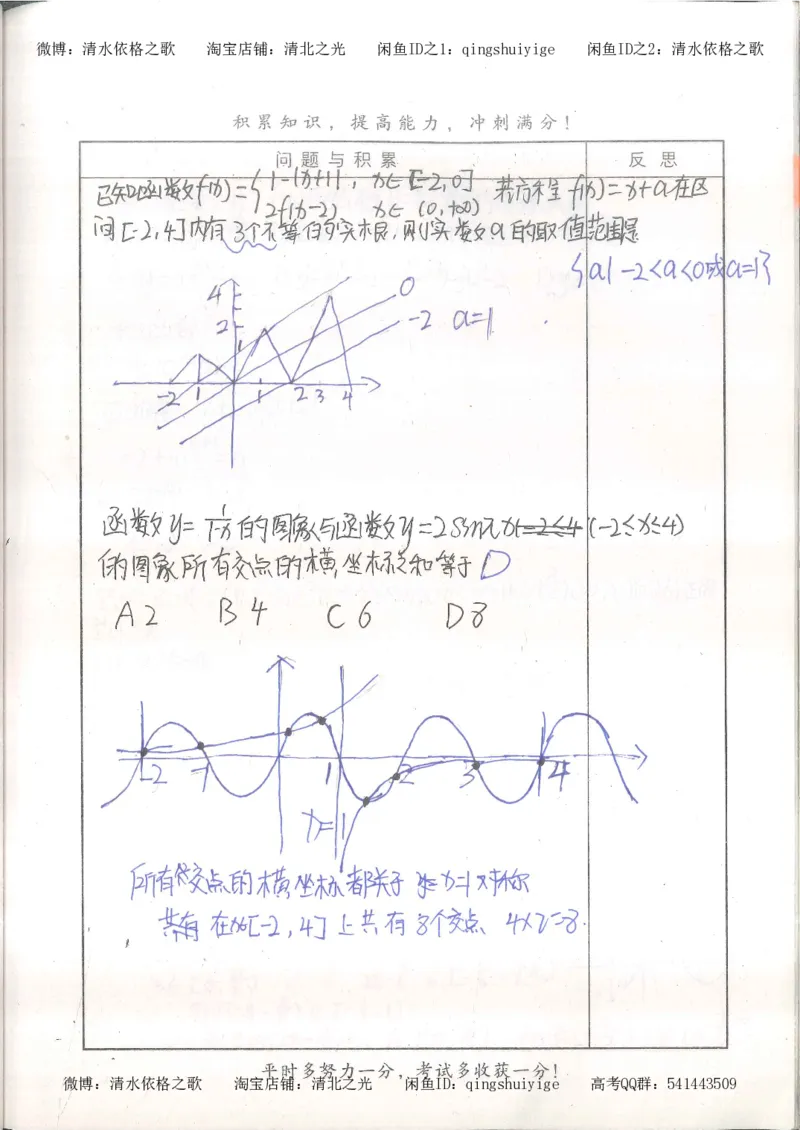 微博：清水依格之歌 淘宝店铺：清北之光 闲鱼ID之1：qingshuiyige 闲鱼ID之2：清水依格之歌
积累知识，提高能力，冲刺满分！
问题与积累 反思
已知函数f(x)={1-|x+1|，x∈[-2,0] 若方程f(x)=x+a在区
2f(x-2) x∈(0,+∞)
间[-2,4]内有3个不等的实根，则实数a的取值范围是
{a|-2<a<0或a=1}
4 0
2 -2 a=1
1
-2 1 1 2 3 4
函数y=1/(1-x)的图象与函数y=2sinπx(-2≤x≤4)
的图象所有交点的横坐标之和等于D
A 2 B 4 C 6 D 8
-2 -1 1 2 3 4
x=1
所有交点的横坐标都关于x=1对称
共有 在x[-2,4]上共有8个交点、4×2=8.
平时多努力一分，考试多收获一分！
微博：清水依格之歌 淘宝店铺：清北之光 闲鱼ID：qingshuiyige 高考QQ群：541443509